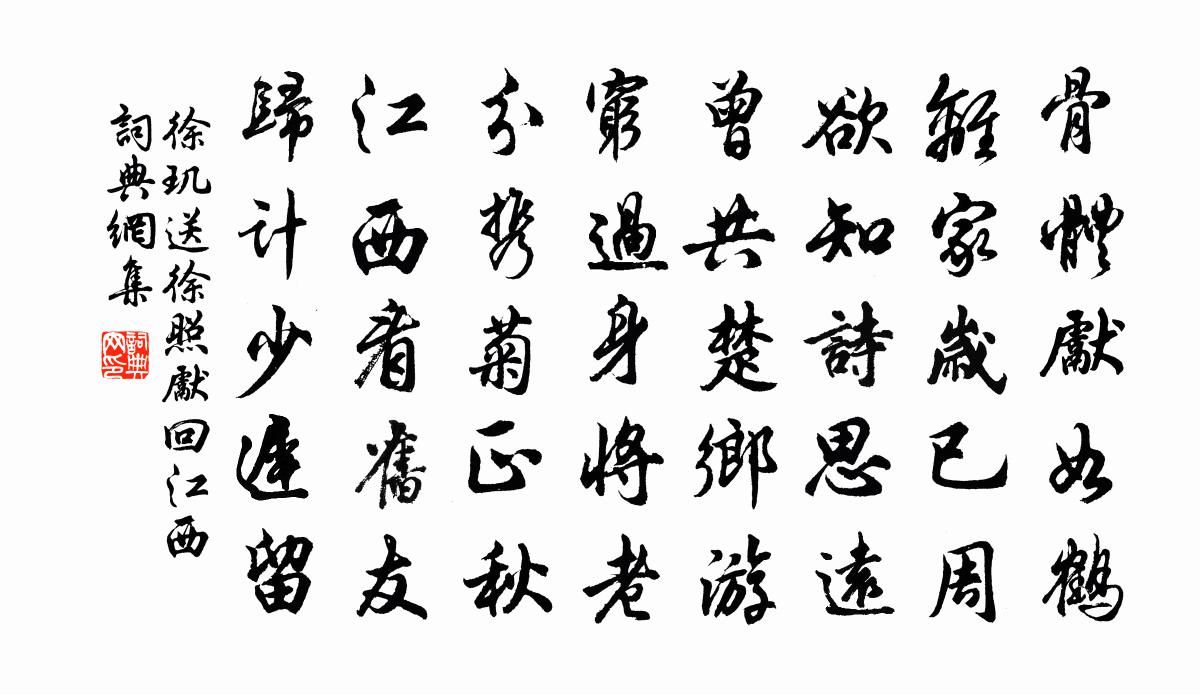 骨體獻如鶴
離家歲已周
欲知詩思遠
曾共楚鄉游
窮過身將老
分携菊正秋
江西看舊友
歸計少遲留
徐玑送徐照獻回江西
詞典網集
詞典
网印